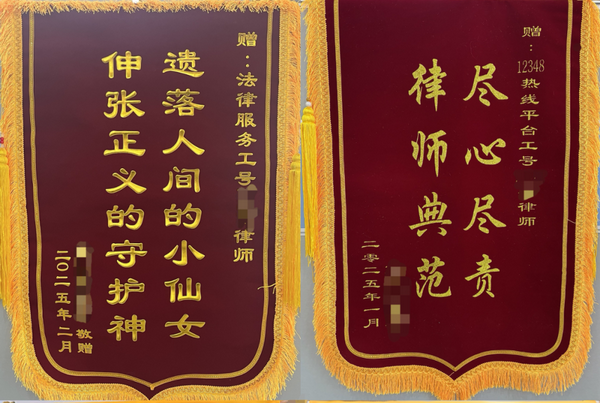 赠：法律服务工号
律师
遗落人间的小仙女
伸张正义的守护神
敬赠
二〇二五年二月
赠：12348热线平台工号
律师
尽心尽责
律师典范
二零二五年一月